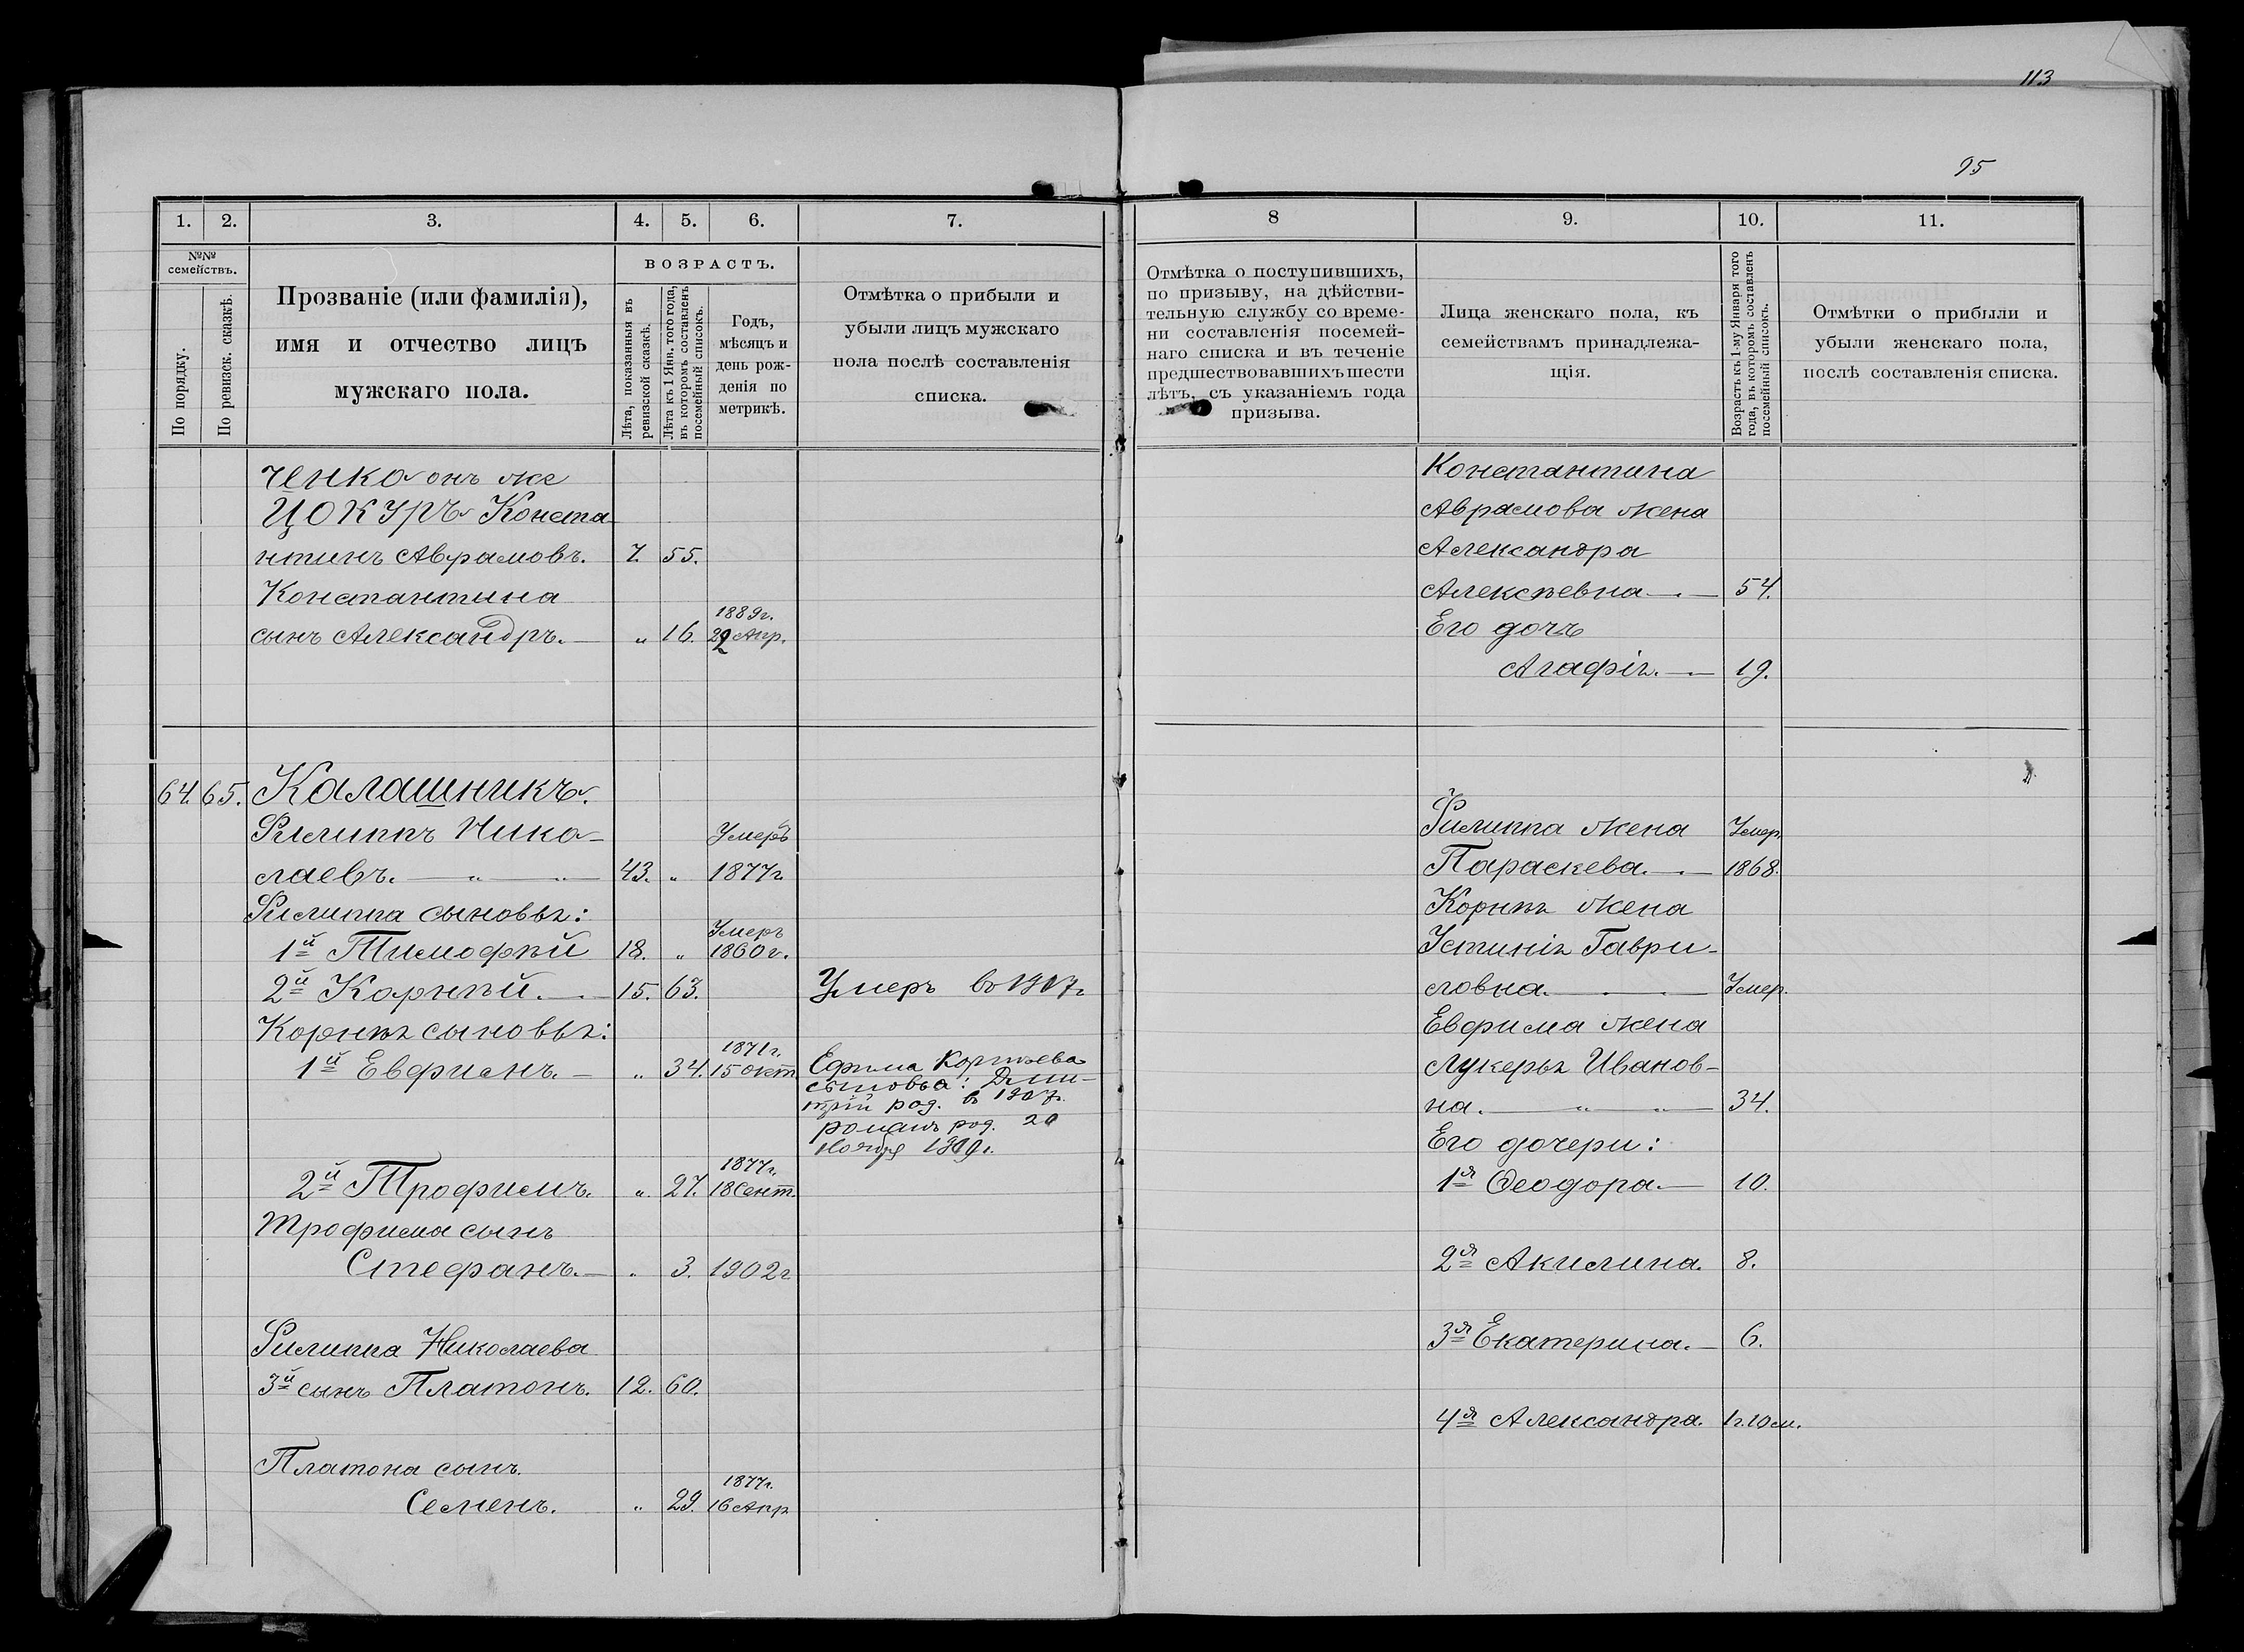 113
95
1.
2.
3.
4.
5.
6.
7.
№№ семействъ.
По порядку.
По ревизск. сказкѣ.
Прозваніе (или фамилія),
имя и отчество лицъ
мужскаго пола.
ВОЗРАСТЪ.
Лѣта, показанныя въ
ревизской сказкѣ.
Лѣта къ 1 Янв. того года,
въ которомъ составленъ
посемейный списокъ.
Годъ,
мѣсяцъ и
день рож-
денія по
метрикѣ.
Отмѣтка о прибыли и
убыли лицъ мужскаго
пола послѣ составленія
списка.
ченко онъ же
ЦОКУРЪ Конста-
нтинъ Аврамовъ. 7. 55.
Константина
1889г.
сынъ Александръ. — „ 16. 22 Апр.
64. 65. Калашникъ.
Филиппъ Нико- Умеръ
лаевъ. — „ — „ — 43. „ 1877г
Филиппа сыновья:
Умеръ
1й Тимофѣй 18. „ 1860г.
2й Корнѣй. — 15. 63. Умеръ въ 1907г
Корнѣя сыновья:
1871г.
1й Евфимъ. — „ 34. 15 окт Ефима Корнѣева
сыновья: Дми-
трій род. в 1907г.
романъ род. 20
ноября 1909г.
1877г.
2й Трофимъ. „ 27. 18 Сент.
Трофима сынъ
Стефанъ. — „ 3. 1902г
Филиппа Николаева
3й сынъ Платонъ. 12. 60.
Платона сынъ
1877г.
Семенъ. „ 29. 16 Апр
8
9.
10.
11.
Отмѣтка о поступившихъ,
по призыву, на дѣйстви-
тельную службу со време-
ни составленія посемей-
наго списка и въ теченіе
предшествовавшихъ шести
лѣтъ, съ указаніемъ года
призыва.
Лица женскаго пола, къ
семействамъ принадлежа-
щія.
Возрастъ къ 1-му Января того
года, въ которомъ составленъ
посемейный списокъ.
Отмѣтки о прибыли и
убыли женскаго пола,
послѣ составленія списка.
Константина
Аврамова жена
Александра
Алексѣевна — 54.
Его дочь
Агафія. — 19.
Филиппа жена Умер.
Параскева. — 1868.
Корнѣя жена
Устинія Гаври-
ловна. — Умер.
Евфима жена
Лукерья Иванов-
на. — „ — „ — 34.
Его дочери:
1я Ѳеодора. — 10.
2я Акилина. 8.
3я Екатерина. — 6.
4я Александра. 1г.10м.